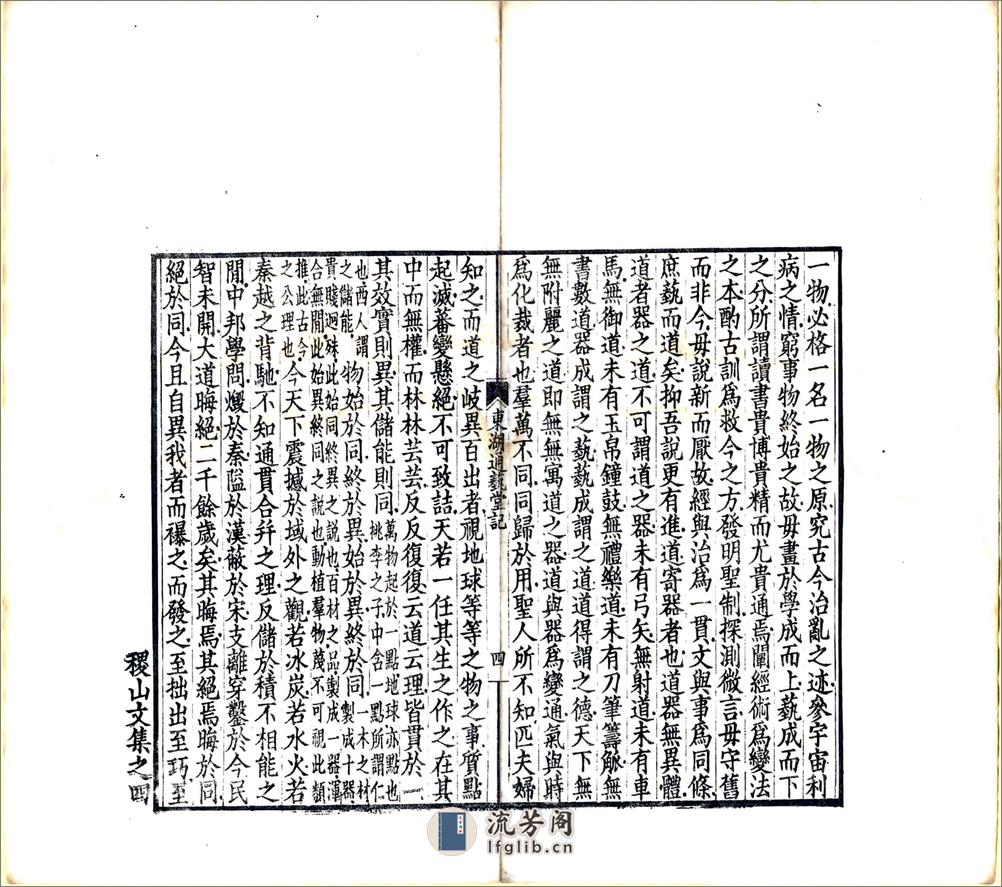 一物必格一名一物之原究古今治亂之迹參宇宙利
病之情窮事物終始之故毋畫於學成而上藝成而下
之分所謂讀書貴博貴精而尤貴通焉闡經術爲變法
之本酌古訓爲救今之方發明聖制探測微言毋守舊
而非今毋說新而厭故經與治爲一貫文與事爲同條
庶藝而道矣抑吾說更有進道寄器者也道器無異體
道者器之道不可謂道之器未有弓矢無射道未有車
馬無御道未有玉帛鐘鼓無禮樂道未有刀筆籌觚無
書數道器成謂之藝藝成謂之道道得謂之德天下無
無附麗之道即無無寓道之器道與器爲變通氣與時
爲化裁者也羣萬不同同歸於用聖人所不知匹夫婦
東湖通藝堂記
四
知之而道之岐異百出者視地球等等之物之事質點
起滅蕃變懸絕不可致詰天若一任其生之作之在其
中而無權而林林芸芸反反復復云道云理皆貫於一
其效實則異其儲能則同萬物起於一點地球亦點也桃李之子中含一點所謂仁
也西人謂之儲能物始於同終於異始於異終於同一木之材
貴賤迥殊此始同終異之說也百材之品製成一器渾
合無間此始異終同之說也動植羣物莫不可視此類
推此古今之公理也今天下震撼於域外之觀若冰炭若水火若
秦越之背馳不知通貫合幷之理反儲於積不相能之
閒中邦學問燬於秦隘於漢蔽於宋支離穿鑿於今民
智未開大道晦絕二千餘歲矣其晦焉其絕焉晦於同
絕於同今且自異我者而襮之而發之至拙出至巧至
稷山文集之四
流芳阁
lfglib.cn